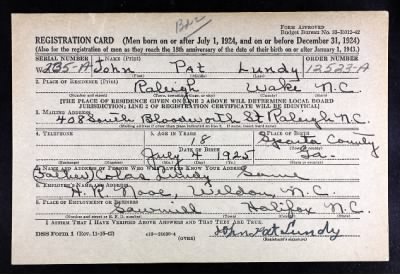 Form Approved
Budget Bureau No. 33-R012-42
REGISTRATION CARD (Men born on or after July 1, 1924, and on or before December 31, 1924)
(Also for the registration of men as they reach the 18th anniversary of the date of their birth on or after January 1, 1943.)
SERIAL NUMBER 1. NAME (Print) ORDER NUMBER
W 235-A John Pat Lundy 12523-A
(First) (Middle) (Last)
2. PLACE OF RESIDENCE (Print)
Raleigh Wake N.C.
[THE PLACE OF RESIDENCE GIVEN ON LINE 2 ABOVE WILL DETERMINE LOCAL BOARD
JURISDICTION; LINE 2 OF REGISTRATION CERTIFICATE WILL BE IDENTICAL]
3. MAILING ADDRESS
408 South Bloodworth St Raleigh N.C.
[Mailing address if other than place indicated on line 2. If same insert word same]
4. TELEPHONE 5. AGE IN YEARS 6. PLACE OF BIRTH
18
DATE OF BIRTH
County
July 4 1925 Ga.
7. NAME AND ADDRESS OF PERSON WHO WILL ALWAYS KNOW YOUR ADDRESS
Lundy Same
8. EMPLOYER'S NAME AND ADDRESS
Weldon N.C.
9. PLACE OF EMPLOYMENT OR BUSINESS
Sawmill Halifax N.C.
I AFFIRM THAT I HAVE VERIFIED ABOVE ANSWERS AND THAT THEY ARE TRUE.
DSS Form 1 (Rev. 11-16-42) (OVER) John Pat Lundy